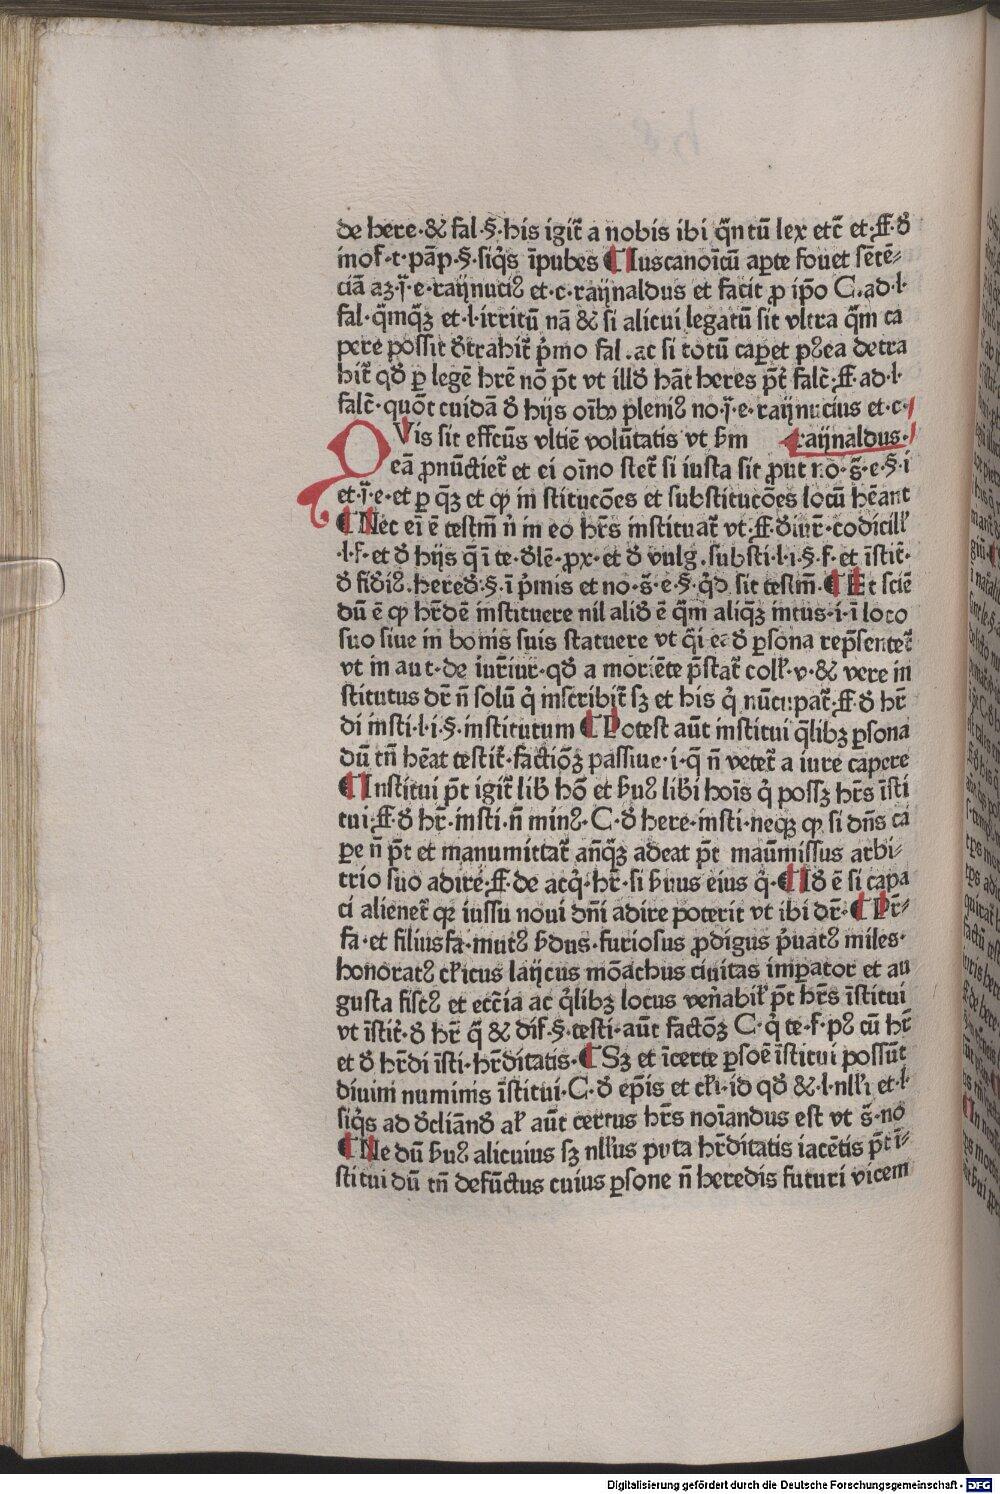 de here·& fal·§·his igit᷑ a nobis ibi q̄ntū lex etc̄ et·ff·ď
inof·t·pāp·§·siq̇s īpubes ¶ Iuscanoicū aꝑte fouet sētē⸗
ciā aꝫ·j̄·e·raijnuciꝰ et·c·raijnaldus et facit ꝓ ip̄o C·ad·l·
fal·q̄mqꝫ et·l·irritū nā & si alicui legatū sit vltra q̄m ca
pere possit ďtrahit᷑ p̄mo fal·ac si totū caperet pꝰea detra
hit᷑ qď ꝑ legē hr̄e nō p̄t vt illď hāt heres p̄t᷑ falc̄·ff·ad·l·
falc̄·quōt cuidā ď hijs oībꝰ pleniꝰ no·j̄·e·raijnucius et·c·
raijnaldus·
QVis sit effcūs vltīe volūtatis vt ẜm
eā ꝓnūctiet᷑ et ei oīno stet᷑ si iusta sit ꝓut no·s̄·e·§·i
et·j̄·e·et ꝑ qꝫ et qꝫ in stitucōes et substitucōes locū hēant
¶ Nec eī ē testm̄ n̄ in eo hr̄s instituat᷑ vt·ff·ď iur̄·codicill᷑
·l·f·et ď hijs q̄ ī te·ďlē·ꝓx·et ď vulg·substi·l·i·§·f·et īstit᷑·
ď fiďiꝰ·hereď·§·ī p̄mis et no·s̄·e·§·q̇d sit testm̄·¶ Et sciē
dū ē qꝫ hr̄dē instituere nil aliď ē q̄m aliqꝫ intus·i·ī loco
suo siue in bonis suis statuere vt q̄i ea ď ꝑsona rep̄sentet᷑
vt in aut·de iur̄iur·qď a moriēte p̄stat᷑ coll᷑·v·& vere in
stitutus dr̄ n̄ solū q̇ inscribit᷑ sꝫ et his q̇ nūcupat᷑·ff·ď hr̄
di insti·l·i·§·institutum ¶ Potest aūt institui q̄libꝫ ꝑsona
dū tn̄ hēat testit᷑·factiōꝫ passiue·i·q̄ n̄ vetet᷑ a iure capere
¶ Institui p̄t igit᷑ lib᷑ hō et ẜuꝰ lib᷑i hoīs q̇ possꝫ hr̄s īsti
tui·ff·ď hr̄·insti·n̄ minꝰ·C·ď here·insti·neqꝫ qꝫ si dn̄s ca
pe n̄ p̄t et manumittat᷑ an̄qꝫ adeat p̄t maūmissus arbi⸗
trio suo adire·ff·de acq̇·hr̄·si ẜuus eius q̇·¶ Iď ē si capa
ci alienet᷑ qꝛ iussu noui dn̄i adire poterit vt ibi dr̄·¶ Pr̄⸗
fa·et filiusfa·mutꝰ ẜdus·furiosus ꝓdigus p̄uatꝰ miles·
honoratꝰ cl᷑icus laijcus mōachus ciuitas imꝑator et au
gusta fiscꝰ et ecc̄ia ac q̇libꝫ locus ven̄abil᷑ p̄t hr̄s īstitui
vt īstit᷑·ď hr̄ q̄ & dif·§·testi·aūt factōꝫ C·q̇ te·f·pꝰ cū hr̄
et ď hr̄di īsti·hr̄ditatis·¶ Sꝫ et īcerte ꝑsoē īstitui possūt
diuini numinis īstitui·C·ď ep̄is et cl᷑i·id qď &·l·nll᷑i et·l·
siq̇s ad ďcliānď al᷑ aūt certus hr̄s noīandus est vt s̄·no
¶ Ne dū ẜuꝰ alicuius sꝫ nll᷑ius puta hr̄ditatis iacētis p̄t ī⸗
stitui dū tn̄ defūctus cuius ꝑsone n̄ heredis futuri vicem
Digitalisierung gefördert durch die Deutsche Forschungsgemeinschaft - DFG